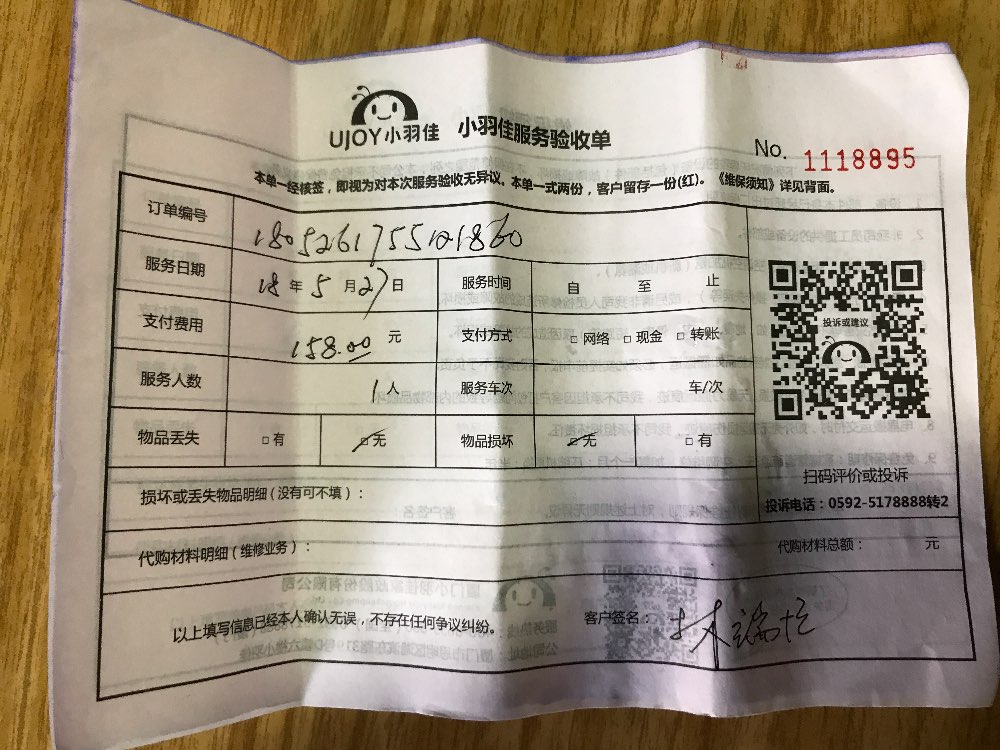 UJOY小羽佳 小羽佳服务验收单
No. 1118895
本单一经核签，即视为对本次服务验收无异议。本单一式两份，客户留存一份(红)。《维保须知》详见背面。
订单编号
服务日期 18 年 5 月 27 日 服务时间 自 至 止
支付费用 158.00 元 支付方式 □ 网络 □ 现金 □ 转账
服务人数 1 人 服务车次 车/次
物品丢失 □ 有 □ 无 物品损坏 □ 无 □ 有
投诉或建议
扫码评价或投诉
投诉电话：0592-5178888转2
损坏或丢失物品明细（没有可不填）：
代购材料明细（维修业务）： 代购材料总额： 元
以上填写信息已经本人确认无误，不存在任何争议纠纷。 客户签名：